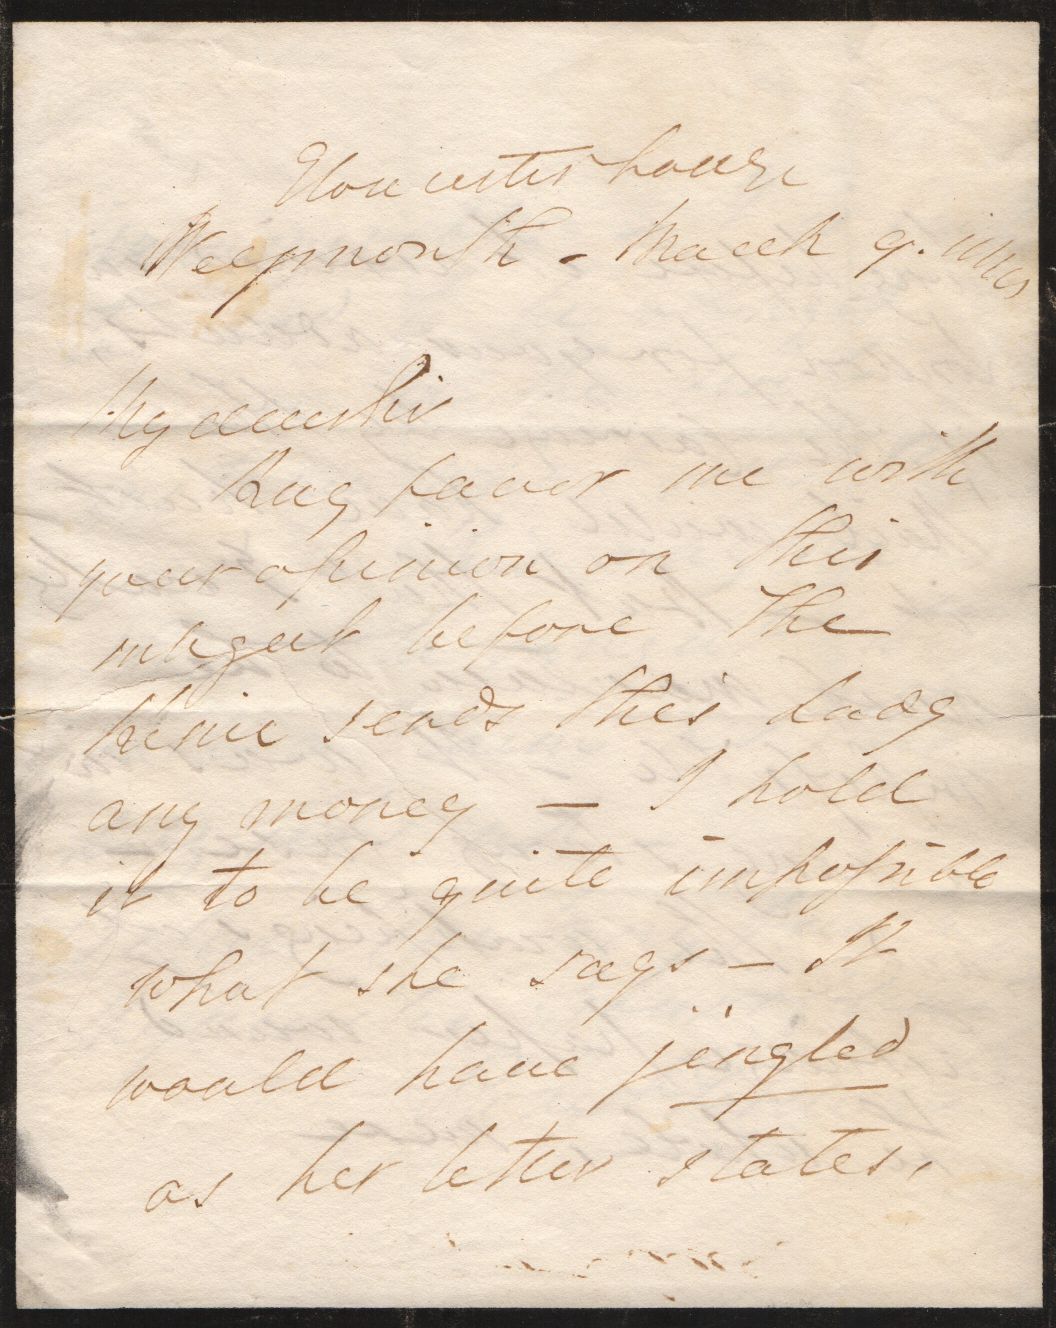 Gloucester house
Weymouth - March 9.
My dear Sir
Pray favor me with
your opinion on this
subject before the
sends this lady
any money — I hold
it to be quite impossible
what she says — It
would have jingled
as her letter states,